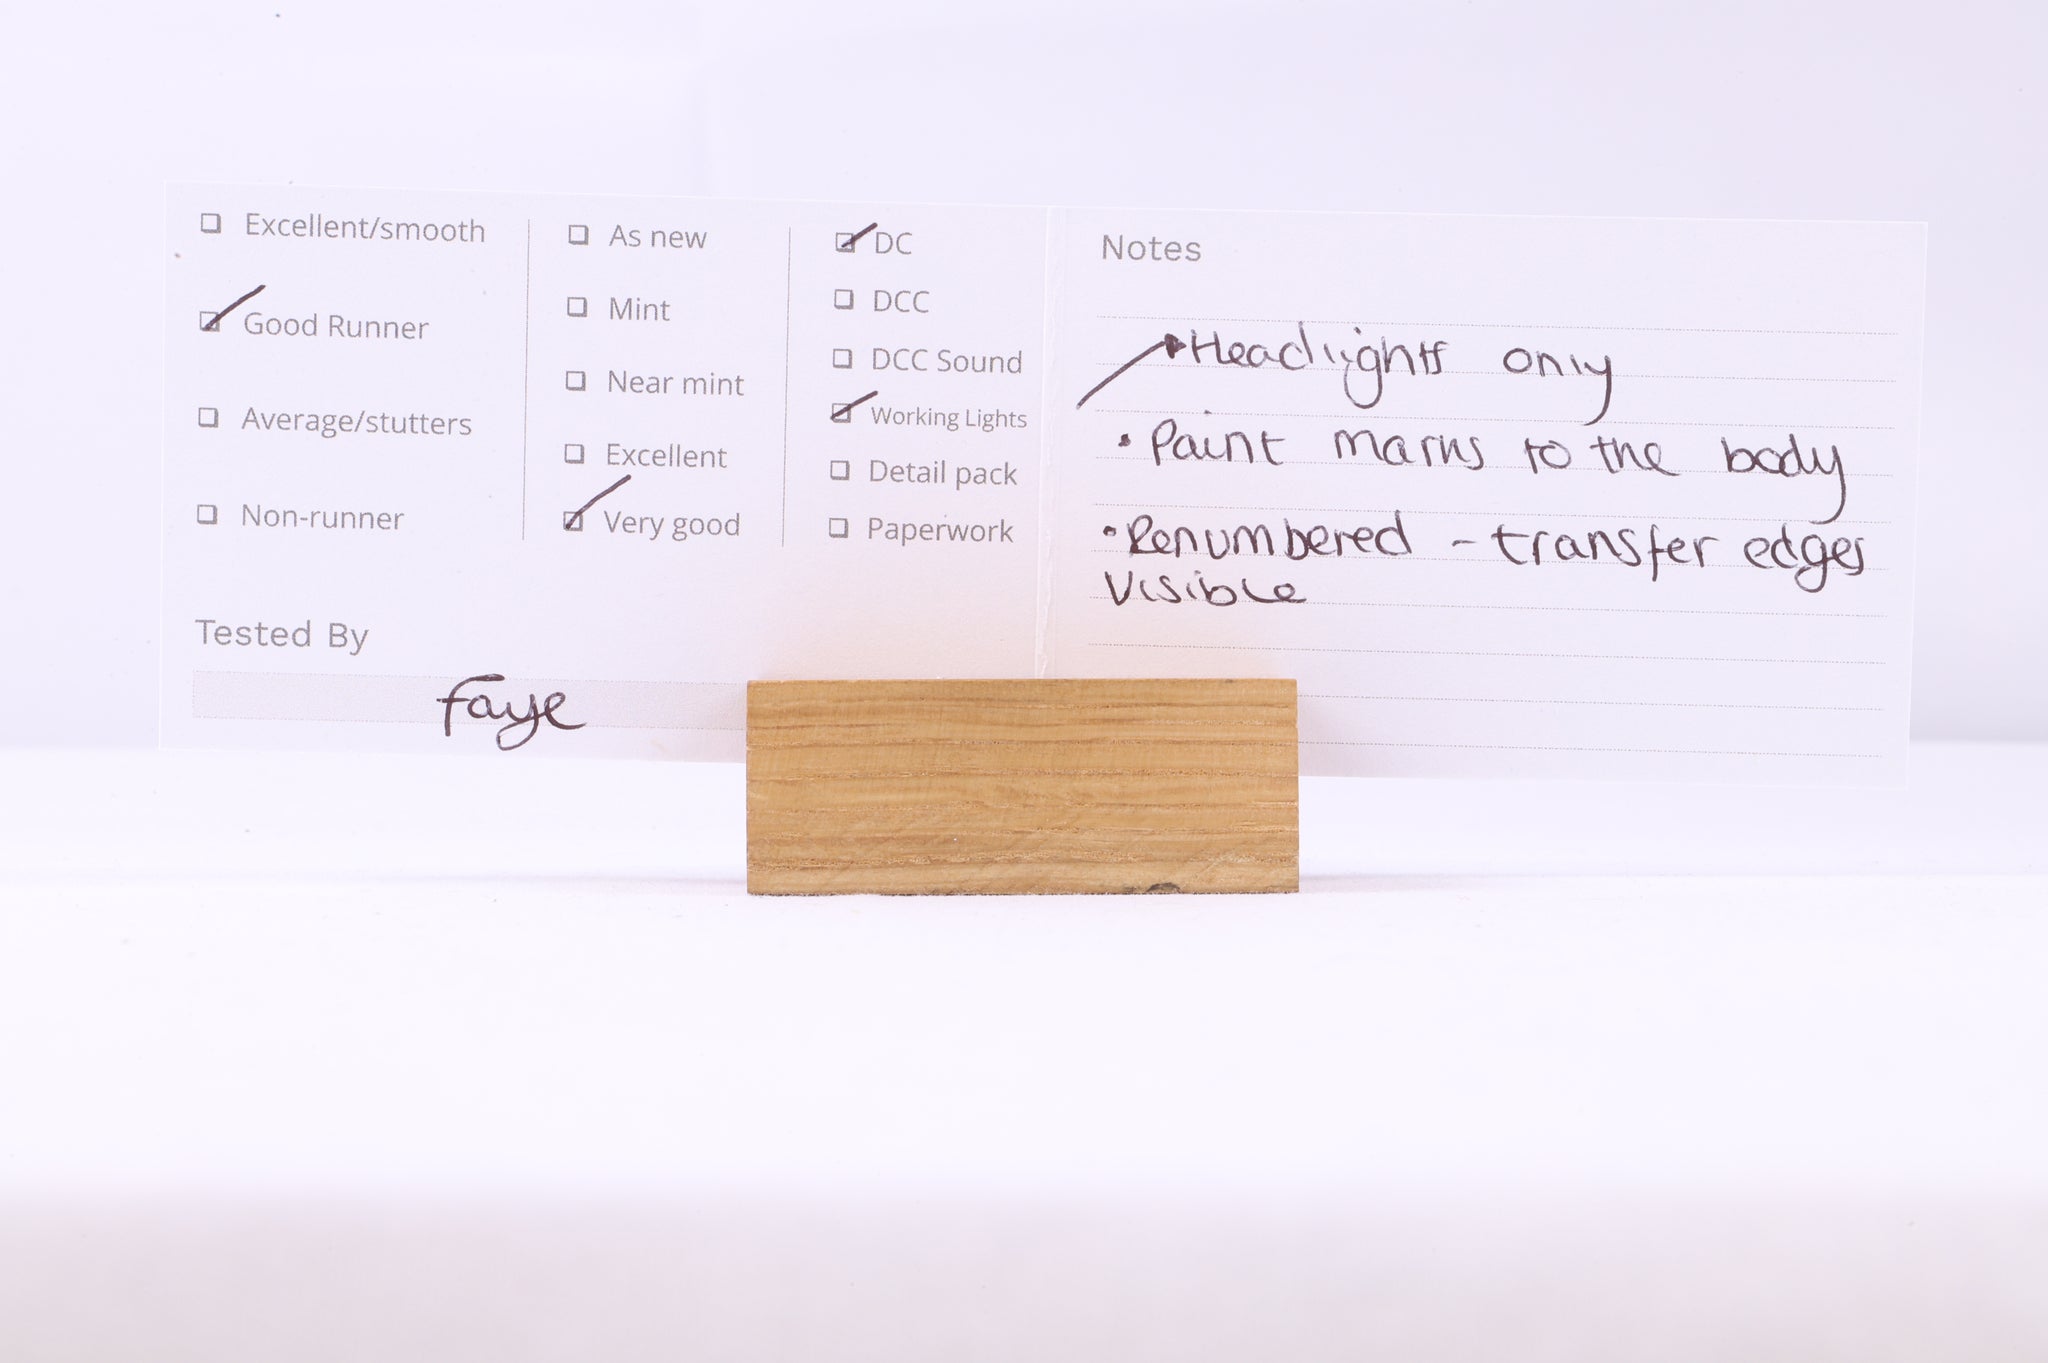 Excellent/smooth
Good Runner
Average/stutters
Non-runner
As new
Mint
Near mint
Excellent
Very good
DC
DCC
DCC Sound
Working Lights
Detail pack
Paperwork
Tested By
Faye
Notes
Headlights only
• Paint marks to the body
• Renumbered - transfer edges
visible